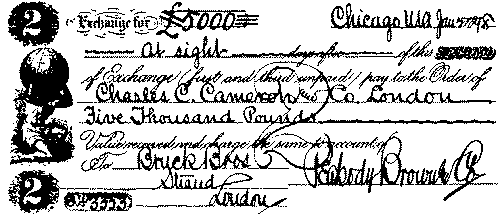 2 Exchange for £5000 Chicago, USA Jan
At sight days after of this SECOND
of Exchange (first and third unpaid) pay to the Order of
Charles C. Cameron & Co. London
Five Thousand Pounds
Value received and charge the same to account of
To Bryck Bros Peabody Brown & Co
Strand
2 London